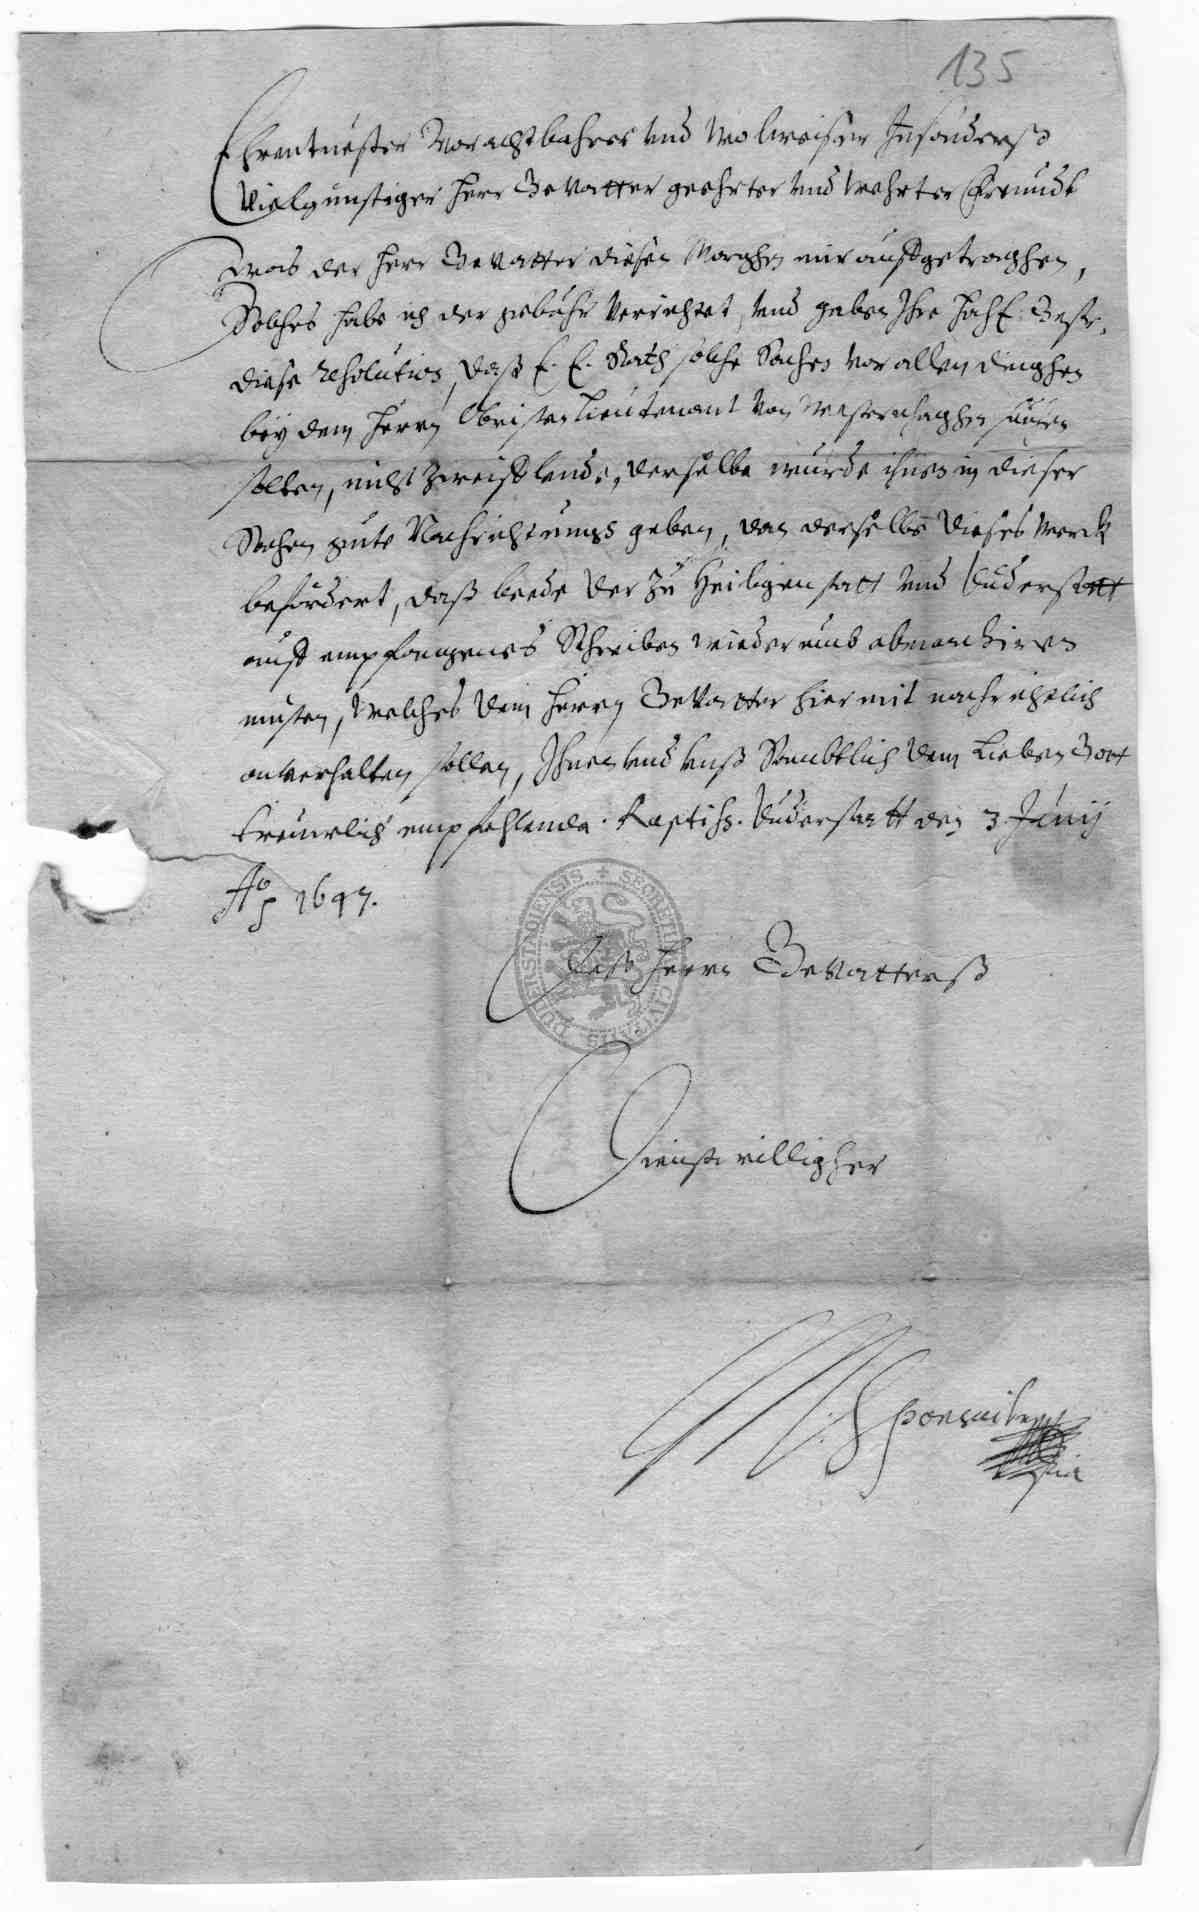 135
Ehrentuester Vorachtbahrer und Wolweiser Insonderß
Vielgunstiger Herr Gevatter geehrter und wehrter Freundt
Was der Herr Gevatter diesen Morghen mir aufgetraghen,
Solches habe ich der gebühr verrichtet, und geben Ihre
diese resolution, daß E. E. Rath solche Sachen vor allen dinghen
bey dem Herrn Obristen Lieutenant von Westernhaghen
solten, nicht zweifflende, derselbe wurde ihnen in dieser
Sachen gute Nachrichtung geben, dan derselbe dieses Werck
befordert, daß beede der zu Heiligenstatt und Duderstatt
auff empfangenes Schreiben wiederumb abmarchiren
musten, Welches dem Herrn Gevatter hiermit nachrichtlich
ohnverhalten sollen, Ihnen und unß Sambtlich dem Lieben Gott
treuwlich empfehlende. Raptiss. Duderstatt den 3 Junij
Ao 1647.
Deß Herrn Gevatterß
Dienstwilligher
SECRETUM CIVITATIS DUDERSTADIENSIS